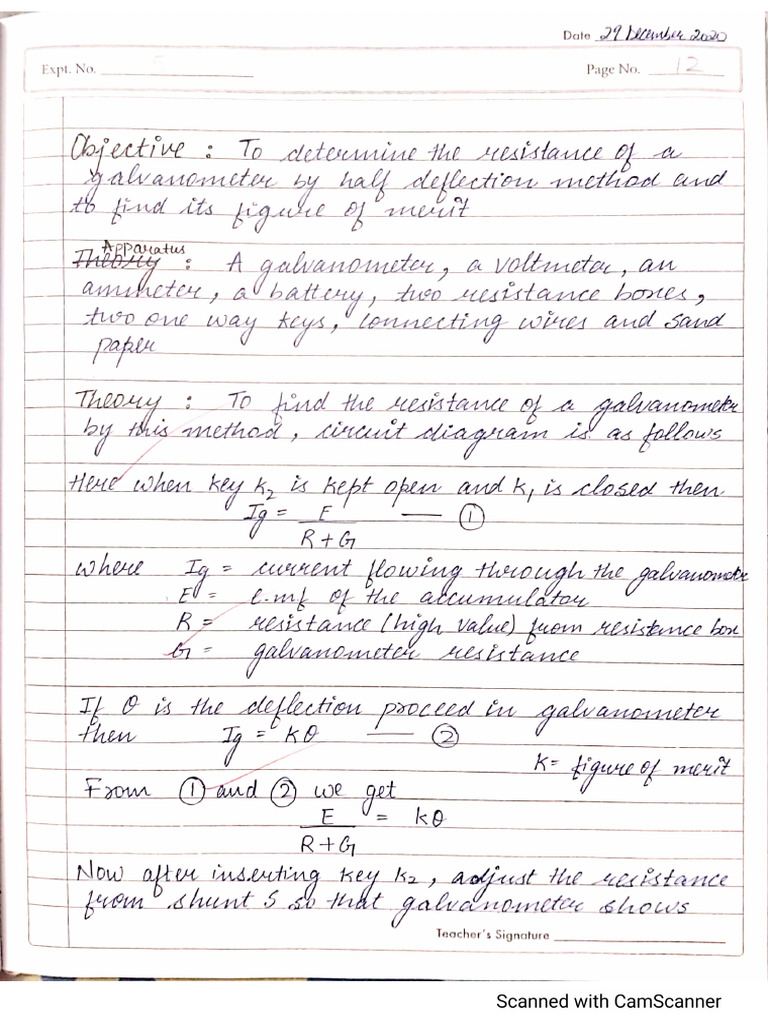 Date 29 December 2020
Expt. No. 5
Page No. 12
Objective : To determine the resistance of a
galvanometer by half deflection method and
to find its figure of merit
Apparatus
Theory : A galvanometer, a voltmeter, an
ammeter, a battery, two resistance boxes,
two one way keys, connecting wires and sand
paper
Theory : To find the resistance of a galvanometer
by this method, circuit diagram is as follows
Here when key K₂ is kept open and K₁ is closed then
Ig = E — ①
R+G
where Ig = current flowing through the galvanometer
E = e.mf of the accumulator
R = resistance (high value) from resistance box
G = galvanometer resistance
If θ is the deflection proceed in galvanometer
then Ig = kθ — ②
K = figure of merit
From ① and ② we get
E = kθ
R+G
Now after inserting key K₂, adjust the resistance
from shunt S so that galvanometer shows
Teacher's Signature
Scanned with CamScanner